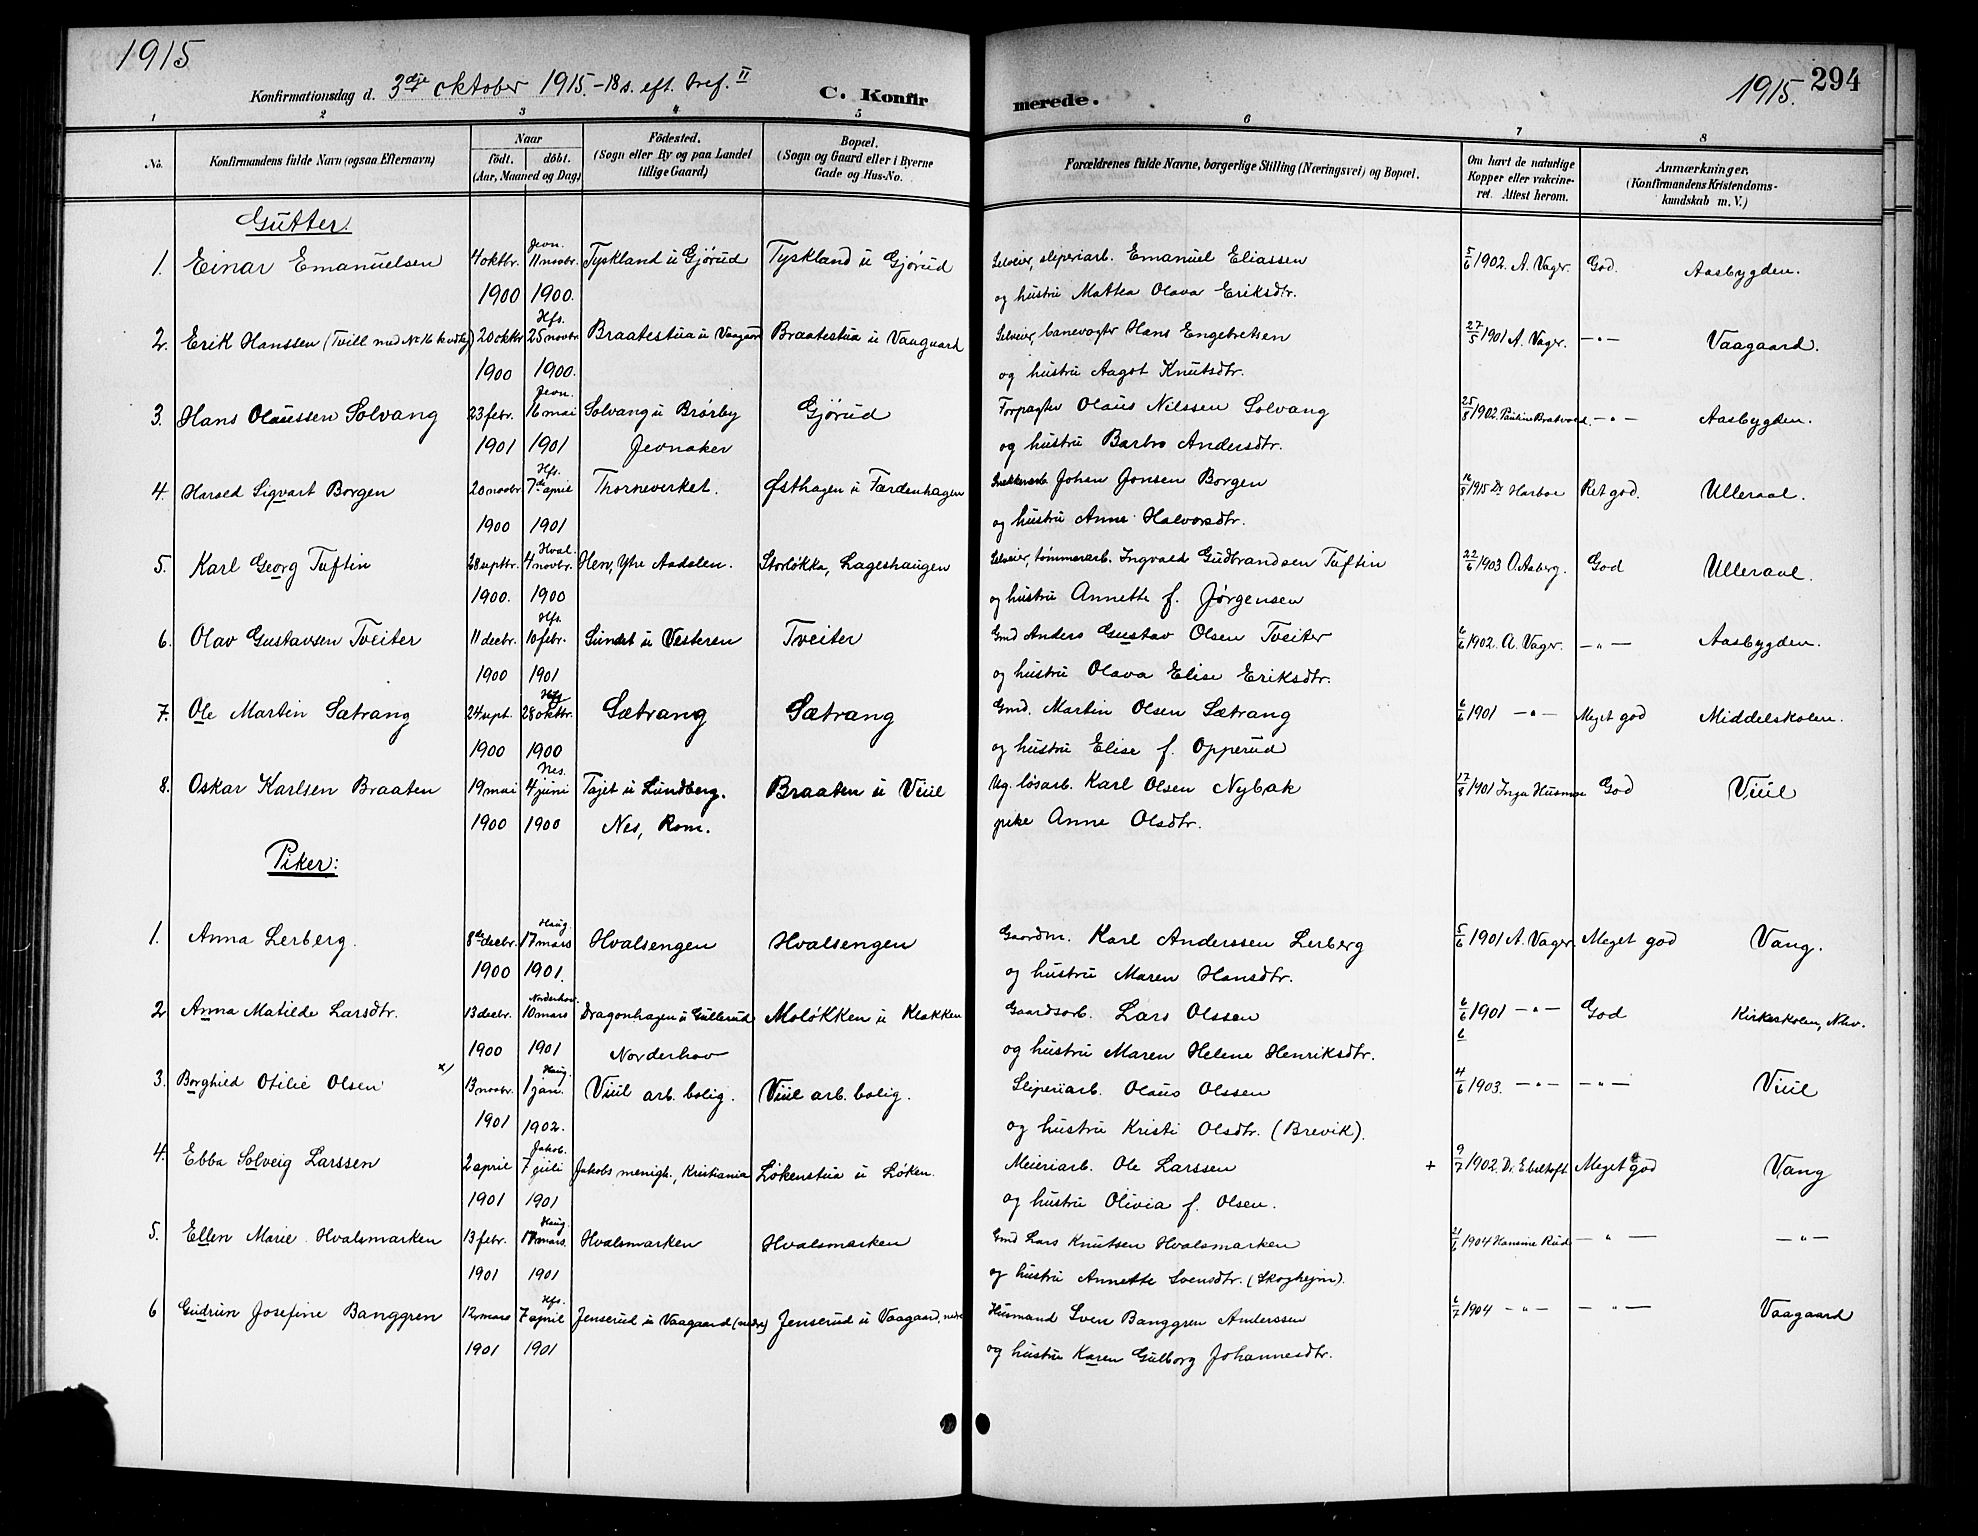 1915
1915. 294
Konfirmationsdag d. 3dje oktober 1915. - 18 s. eft. tref. II C. Konfirmerede.
1 2 3 4 5 6 7 8
No. Konfirmandens fulde Navn (ogsaa Efternavn) Naar födt. döbt. (Aar, Maaned og Dag) Födested. (Sogn eller By og paa Landet tillige Gaard) Bopæl. (Sogn og Gaard eller i Byerne Gade og Hus-No. Forældrenes fulde Navne, borgerlige Stilling (Næringsvei) og Bopæl. Om havt de naturlige Kopper eller vakcineret. Attest herom. Anmærkninger, (Konfirmandens Kristendomskundskab m. V.)
Gutter.
Jevn.
1. Einar Emanuelsen 4 oktbr. 11 novbr. Tyskland u Gjørud Tyskland u Gjørud Selveier, sliperiarb. Emanuel Eliassen 5/6 1902. A. Vager. God. Aasbygden.
1900 1900. og hustru Mathea Olava Eriksdtr.
Hfs.
2. Erik Hanssen (Tvill med No 16 kvdtlg) 20 oktbr 25 novbr. Braatestua u Vaagaard Braatestua u Vaagaard Selveier, banevogter Hans Engebretsen 27/5 1901 A. Vager. - " - Vaagaard.
1900 1900. og hustru Aagot Knutsdtr.
Jevn.
3. Hans Olaussen Solvang 23 febr. 16 mai Solvang u Brørby Gjørud Forpagter Olaus Nilssen Solvang 25/8 1902. Pauline Bratvold. - " - Aasbygden.
1901 1901 Jevnaker og hustru Barbro Andersdtr.
Hfs.
4. Harald Sigvart Borgen 20 novbr 7de april Thorneverket. Østhagen u Færdenhagen Snekkerarb. Johan Jonsen Borgen 16/9 1915 Dr Harboe Ret god. Ulleraal.
1900 1901 og hustru Anne Halvorsdtr.
Hval.
5. Karl Georg Tuftin 28 septbr. 4 novbr. Hen, Ytre Aadalen. Storløkka, Lageshaugen Selveier, tømmerarb. Ingvald Gudbrandsen Tuftin 22/6 1903 O. Aaberg. God Ulleraal.
1900. 1900 og hustru Annette f. Jørgensen
Hfs.
6. Olav Gustavsen Tveiter 11 decbr. 10 febr. Sundet u Vesteren Tveiter Gmd Anders Gustav Olsen Tveiter 6/6 1902. A. Vager. - " - Aasbygden.
1900 1901 og hustru Olava Elise Eriksdtr.
Hfs
7. Ole Martin Sætrang 24 sept. 28 oktbr. Sætrang Sætrang Gmd. Martin Olsen Sætrang 6/6 1901 - " - Meget god Middelskolen.
1900 1900 og hustru Elise f. Opperud
Nes.
8. Oskar Karlsen Braaten 19 mai 4 juni Tajet u Lundberg. Braaten u Viul Ug. løsarb. Karl Olsen Nybak 17/8 1901 Inga Husmo God Viul
1900 1900 Nes, Rom. pike Anne Olsdtr.
Piker:
Haug
1. Anna Lerberg. 8de decbr. 17 mars Hvalsengen Hvalsengen Gaardm. Karl Anderssen Lerberg 5/6 1901 A. Vager. Meget god Vang.
1900 1901. og hustru Maren Hansdtr.
Norderhov.
2 Anna Matilde Larsdtr. 13 decbr. 10 mars Dragonhagen u Gullerud Moløkken u Klækken Gaardsarb. Lars Olssen 6/6 1901 - " - God Kirkeskolen, Nhv.
1900 1901 Norderhov og hustru Maren Helene Henriksdtr. 6
Haug.
3. Borghild Otilie Olsen x) 13 novbr. 1 jan. Viul arb. bolig. Viul arb. bolig. Sliperiarb. Olaus Olssen 4/6 1903. - " - - " - Viul
1901 1902. og hustru Kristi Olsdtr. (Brevik).
Jakob.
4. Ebba Solveig Larssen 2 april 7 juli Jakobs menigh., Kristiania Løkenstua u Løken. Meieriarb. Ole Larssen + 9/7 1902. Dr. Ebeltoft Meget god Vang
1901 1901 og hustru Olivia f. Olsen.
Haug.
5. Ellen Marie Hvalsmarken 13 febr. 17 mars. Hvalsmarken Hvalsmarken Gmd Lars Knutsen Hvalsmarken 21/6 1904 Hansine Rud - " - - " -
1901 1901 og hustru Annette Svensdtr. (Skoghejm).
Hfs.
6 Gudrun Josefine Banggren 12 mars 7 april Jenserud u Vaagaard (nedre) Jenserud u Vaagaard, nedre Husmand Sven Banggren Anderssen 6/7 1904 - " - - " - Vaagaard
1901 1901 og hustru Karen Gulborg Johannesdtr.